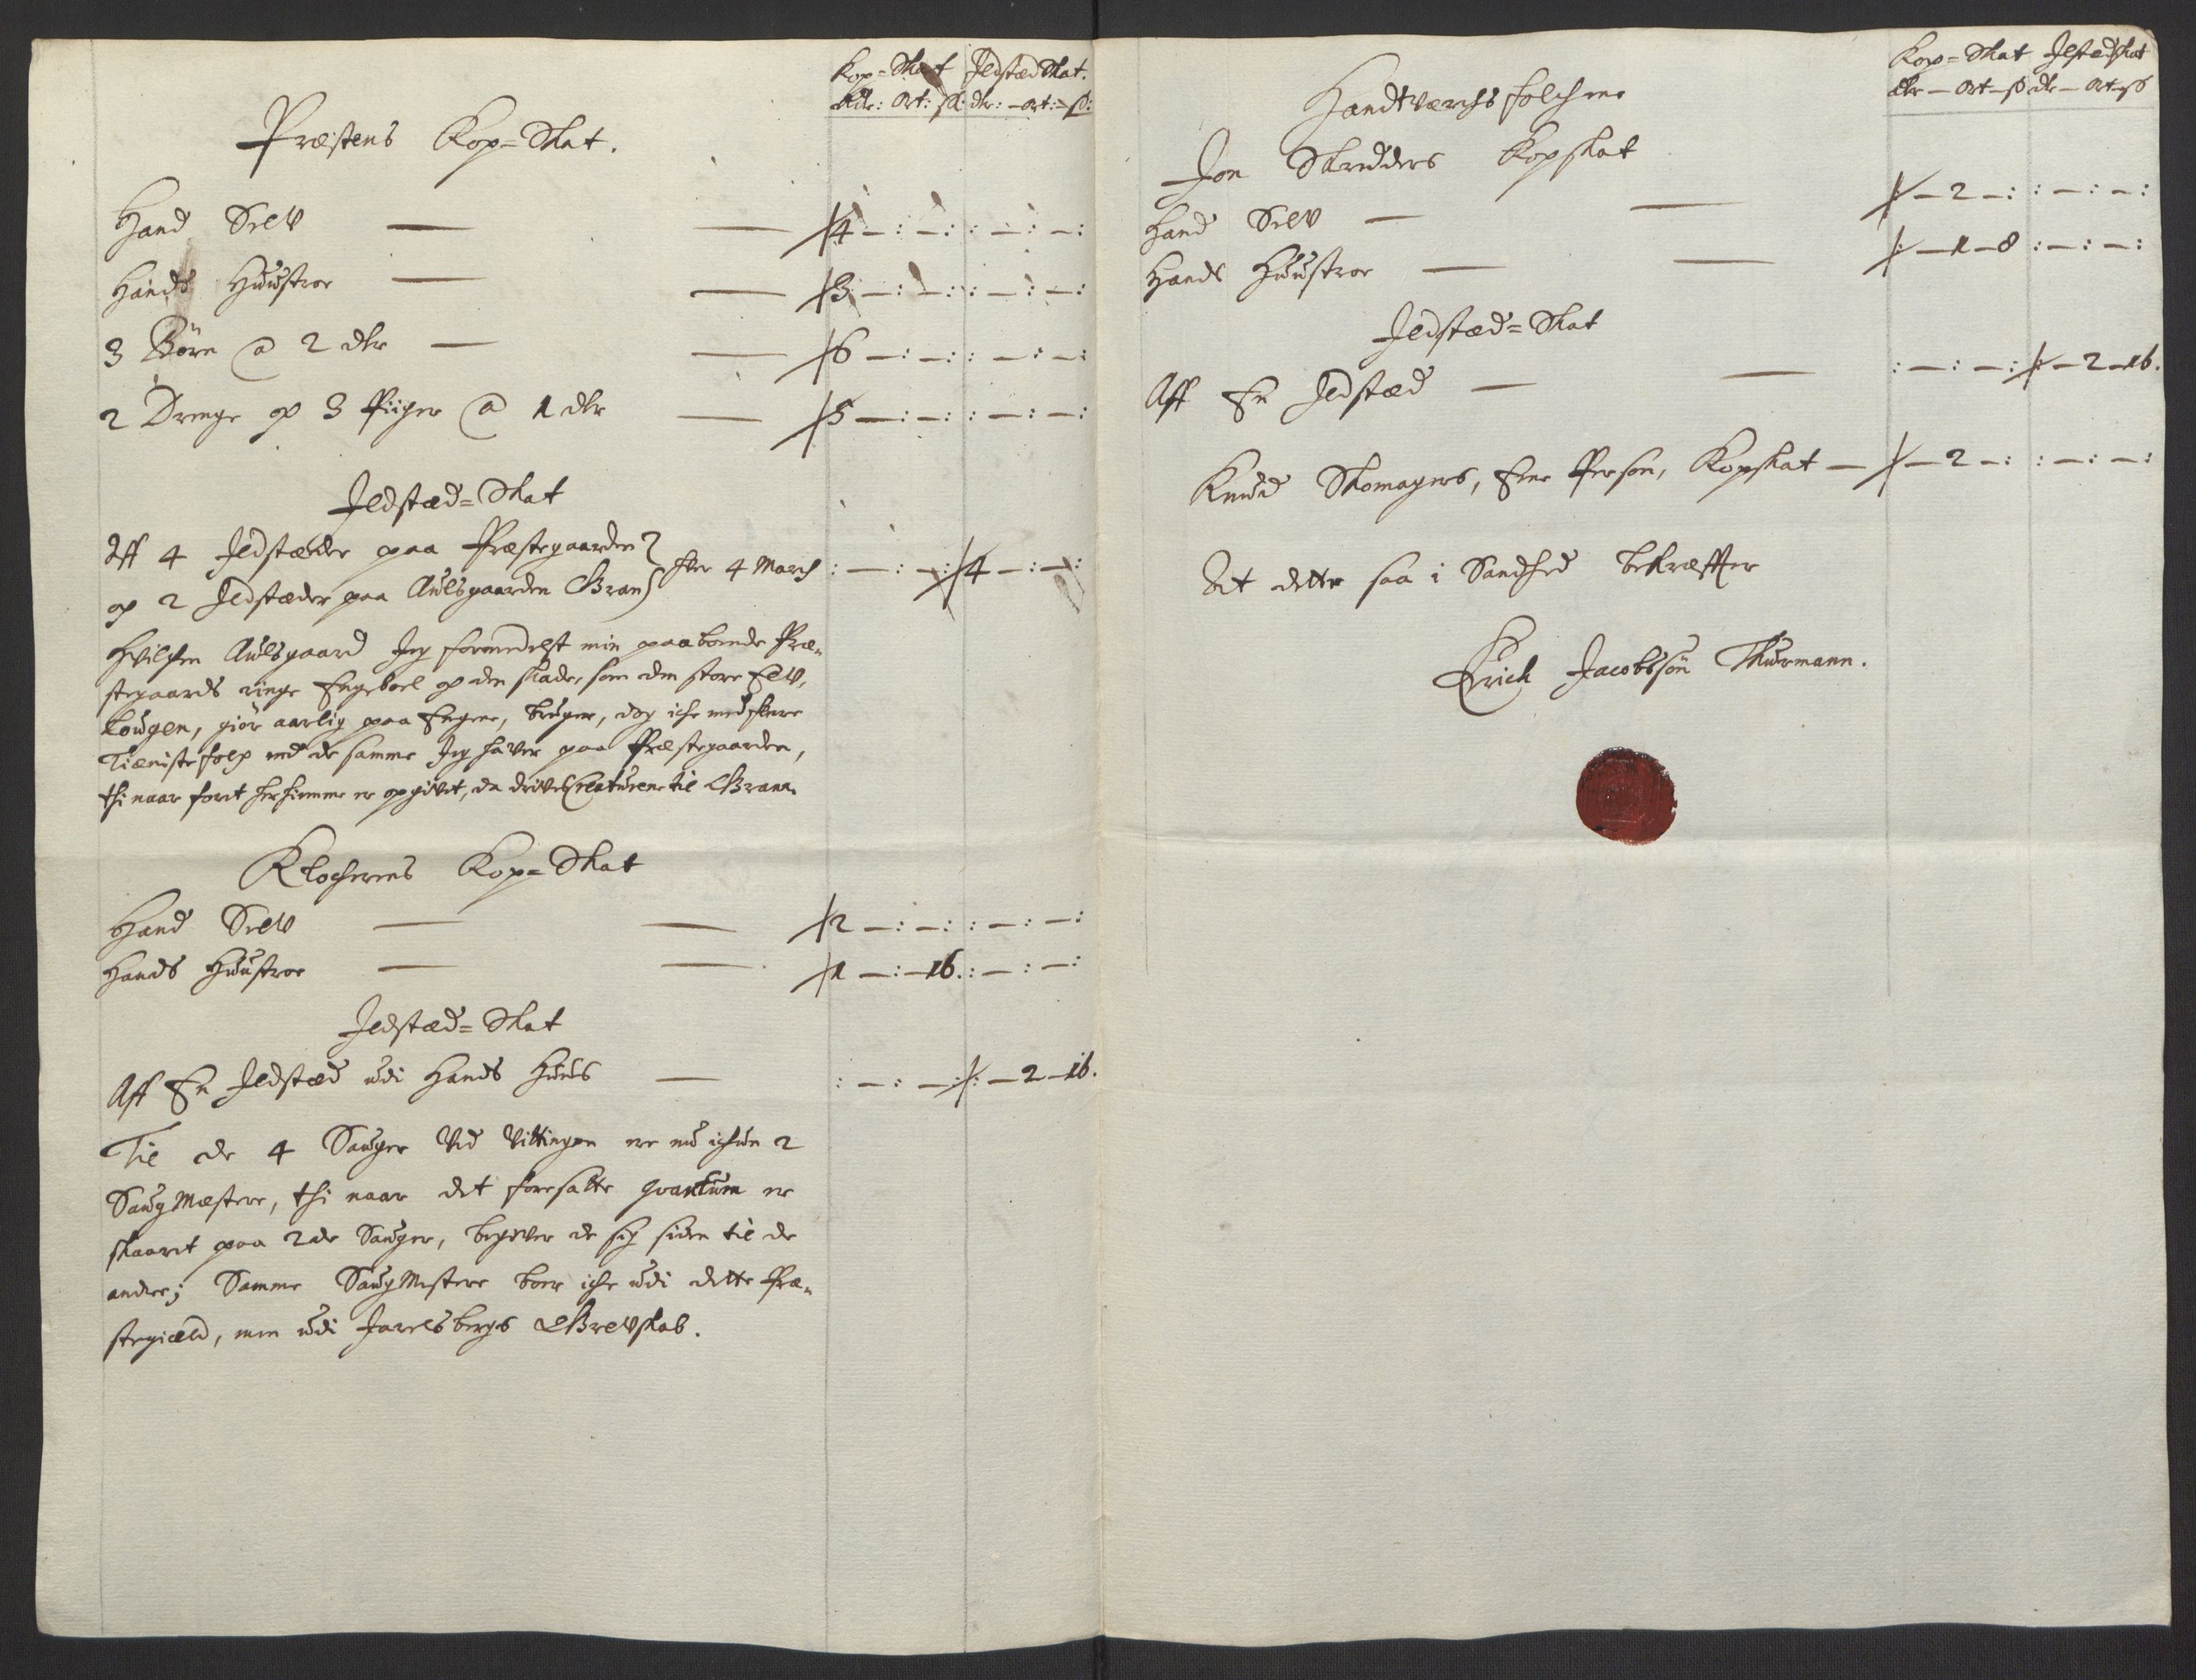 Kop-Skat Jldstæd Skat.
Rdr: Ort: ß: dlr: - ort: - ß:
Præstens Kop-Skat.
Hand Selv — — 4 - : - : : - : - :
Hands Huustroe — — 3 - : - : : - : - :
3 Börn @ 2 dlr — — 6 - : - : : - : - :
2 Drenge og 3 Piiger @ 1 dlr — 5 - : - : : - : - :
Jldstæd-Skat
Aff 4 Jldstæder paa Præstegaarden
og 2 Jldstæder paa Aulsgaarden Gran } 4 March : - : - : 4 - : - :
Hvilchen Aulsgaard Jeg formedelst min paaboende Præ-
stegaards ringe Engeboel og den skade, som den store Elv,
Lougen, giör aarlig paa Engene, bruger, dog iche med flere
Tienistefolch end de samme Jeg haver paa Præstegaarden,
thi naar foret her hiemme er opgivet, da drives Creaturene til Gran.
Klocherens Kop-Skat
Hand Selv — — 2 - : - : : - : - :
Hands Huustroe — — 1 - : - 16. : - : - :
Jldstæd-Skat
Aff En Jldstæd udi Hands Huus — : - : - : : - 2 - 16.
Til de 4 Sauger Ved Vittingen ere nu ichun 2
SaugMæstere, thi naar det foresatte quantum er
skaaret paa 2de Sauger, begiver de sig siden til de
andre; Samme SaugMestere boer iche udi dette Præ-
stegield, men udi Jarelsbergs Grevskab.
Kop-Skat Jlstædskat
dlr - Ort - ß dlr - Ort - ß
Handtværchs folchene
Jon Skredders Kopskat
Hand Selv — — : - 2 - : : - : - :
Hands Huustroe — — : - 1 - 8 : - : - :
Jldstæd-Skat
Aff En Jldstæd — — : - : - : : - 2 - 16.
Knud Skomagers, Ene Person, Kopskat — : - 2 - : : - : - :
At dette saa i Sandhed bekræffter
Erich Jacobssön Thurmann.